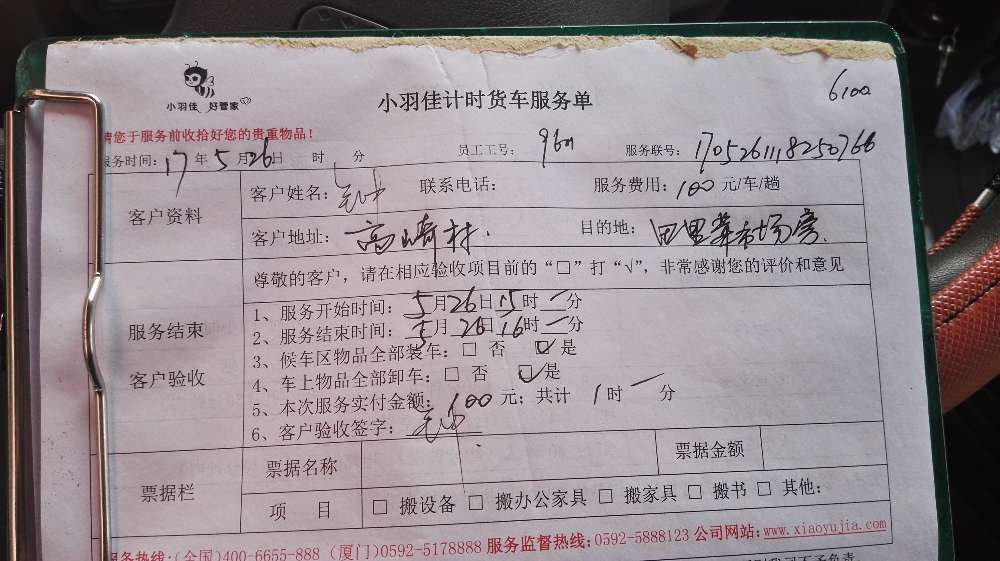 小羽佳 好管家
小羽佳计时货车服务单
6100
请您于服务前收拾好您的贵重物品！
服务时间：17年5月26日 时 分 员工工号： 服务联号：
客户资料
客户姓名： 联系电话： 服务费用：100元/车/趟
客户地址：高崎村. 目的地：
服务结束
客户验收
尊敬的客户，请在相应验收项目前的“□”打“√”，非常感谢您的评价和意见
1、服务开始时间：5月26日15时一分
2、服务结束时间：5月26日16时一分
3、候车区物品全部装车：□ 否 ☑ 是
4、车上物品全部卸车：□ 否 ☑ 是
5、本次服务实付金额：100元；共计 1时一分
6、客户验收签字：
票据栏
票据名称 票据金额
项 目 □ 搬设备 □ 搬办公家具 □ 搬家具 □ 搬书 □ 其他：
服务热线：(全国)400-6655-888 (厦门)0592-5178888 服务监督热线：0592-5888123 公司网站：www.xiaoyujia.com